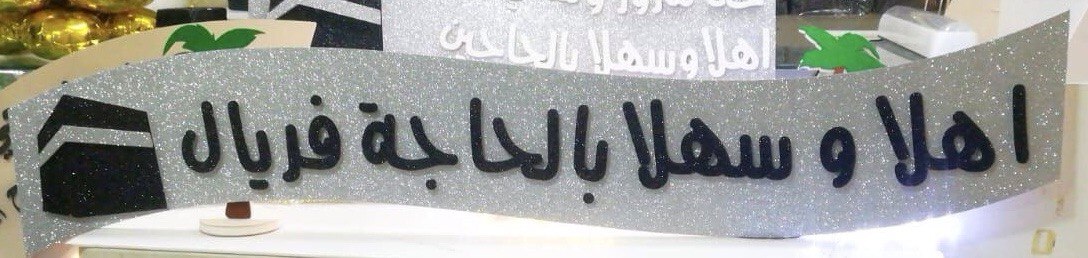 اهلا وسهلا بالحاجين
اهلا و سهلا بالحاجة فريال